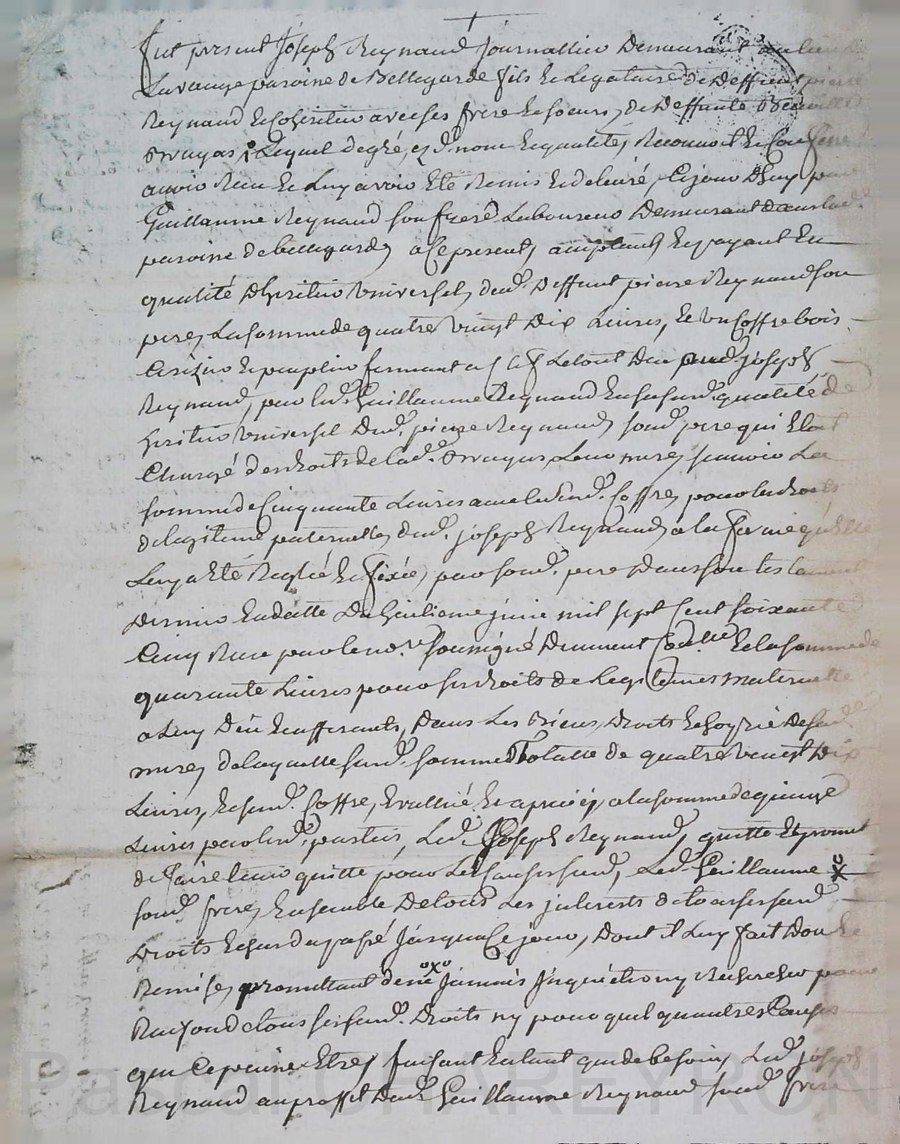 fut present Joseph Reynaud Journallier Demeurant au lieu de
Lavauge paroine de Bellegarde fils Et Legataire de Deffunt pierre
Reynaud Et Coheritier avec ses frere Et soeurs, de Deffunte
Lequel de gré, ez d. nom Et qualités, Reconnoit Et Confesse
avoir Reçu Et Luy avoir Eté Remis Et delivré, Cejourd'huy par
Guillaume Reynaud son frere Laboureur Demeurant dans lad.
paroine de bellegarde, a Ce present, acceptant, Et payant En
qualité D'heritier Universel, dud. Deffunt pierre Reynaud son
pere, La somme de quatre vingt Dix Livres, Et un Coffre bois
Cerizier Et peuplier fermant a Clef, Le tout Deu aud. Joseph
Reynaud, par led. Guillaume Reynaud En sa susd. qualité de
heritier Universel Dud. pierre Reynaud, sond. pere qui Etoit
Chargé des droits de lad. Leur mere, scavoir La
somme de Cinquante Livres avec le susd. Coffre, pour les droits
de legitime paternelle dud. joseph Reynaud, a la forme qu'elle
Luy a Eté Reglée Et fixée, par sond. pere Dans son testament
Dernier En datte Du mil sept Cent soixante
Cinq Reçu par le no.re soussigné Duement Et la somme de
quarante Livres pour ses droits de Legitime Maternelle
a Luy Deu Et afferants, Dans Les Biens, Droits Et hoyrie De sad.
mere, de laquelle susd. somme Totalle de quatre vingt Dix
Livres, Et susd. Coffre, Evallué Et apretié, a la somme de quinze
Livres par lesd. parties, Led. Joseph Reynaud, quitte Et promet
de faire tenir quitte pour Les Causes susd, Led. Guillaume x
sond. frere, Ensemble De tous Les jnterests de tous ses susd.
Droits Et jusqua Ce jour, Dont il Luy fait Don Et
Remise, promettant de ne oxo Jamais Jnquieter ny Rechercher pour
Raison de tous ses susd. Droits ny pour quelqu'autres Causes
que Ce puisse Etre, faisant Entant que de besoin, Led. joseph
Reynaud au proffit Dud. Guillaume Reynaud sond. frere
Pascal CHAREYRON